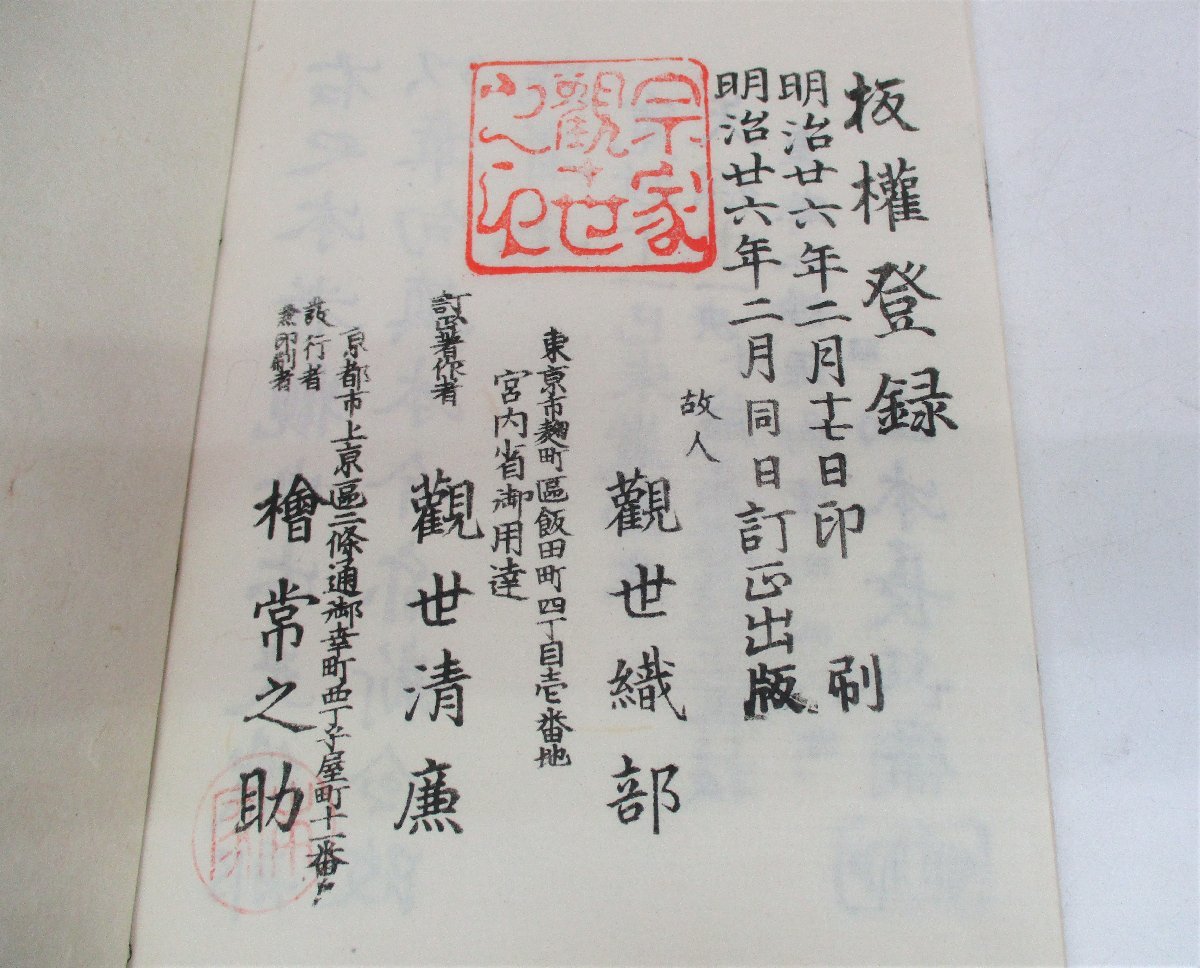 板權登録
明治廿六年二月十七日印刷
明治廿六年二月同日訂正出版
宗家
觀世
之印
故人
觀世織部
東京市麹町區飯田町四丁目壱番地
宮内省御用達
訂正著作者
觀世清廉
京都市上京區二條通御幸町西丁子屋町十一番戸
發行者
兼印刷者
檜常之助